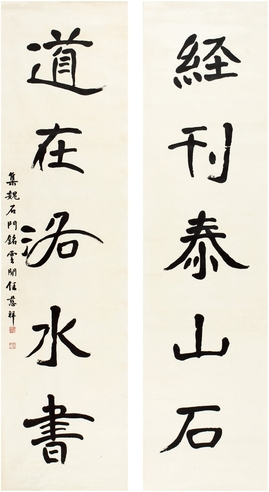 経刊泰山石
道在洛水書
集魏石門銘雲閒任慈祥